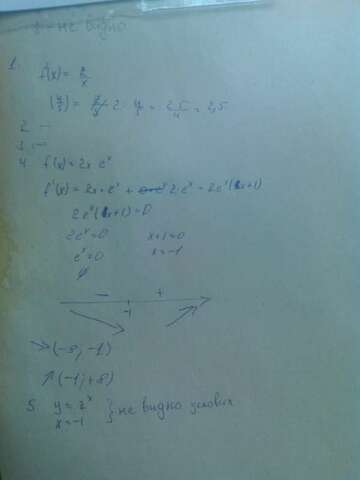 не видно
1.
f(x) = 2/x
2. —
3. —
4. f(x) = 2x · eˣ
f'(x) = 2x · eˣ + 2 · eˣ = 2eˣ(x+1)
2eˣ(x+1) = 0
2eˣ = 0 x+1=0
eˣ = 0 x=-1
∅
- +
-1
↘ (-∞; -1)
↗ (-1; +∞)
5. y = 2ˣ } не видно условия
x = -1